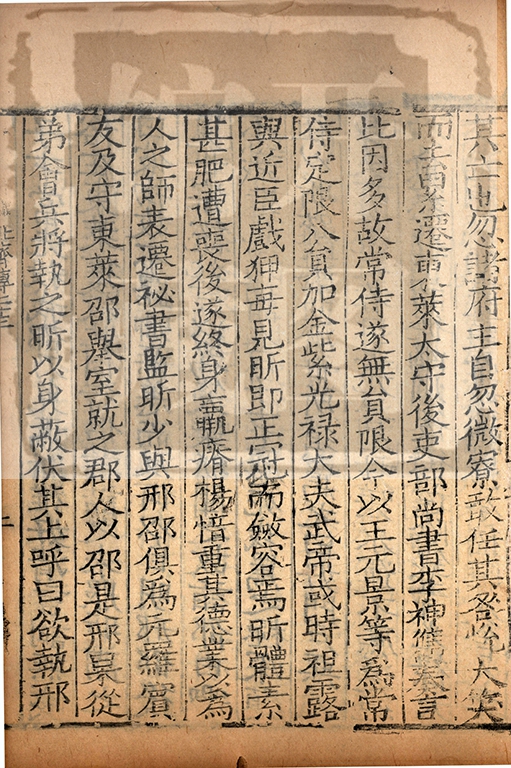 其亡也忽諸府主自忽微寮敢任其咎峴大笑
而去累遷東萊太守後吏部尚書李神儁奏言
比因多故常侍遂無員限今以王元景等為常
侍定限八員加金紫光祿大夫武帝或時袒露
與近臣戲狎每見昕即正冠而斂容焉昕體素
甚肥遭喪後遂終身羸瘠楊愔重其德業以為
人之師表遷祕書監昕少與邢邵俱為元羅賓
友及守東萊邵舉室就之郡人以邵是邢杲從
弟會兵將執之昕以身蔽伏其上呼曰欲執邢